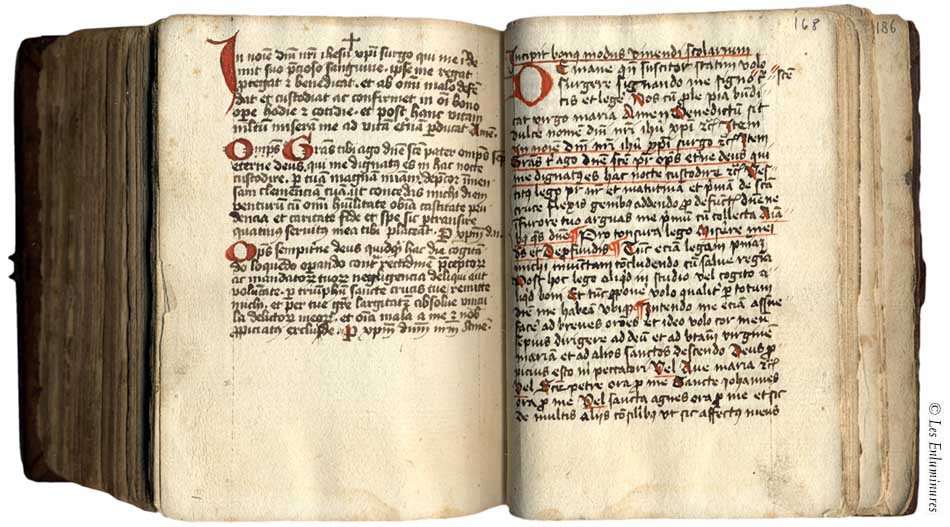 In noie dni nri ihesu xpi surgo qui me rede
mit suo pcioso sanguine. ipse me regat
ptegat et benedicat. et ab omi malo defen
dat et custodiat ac confirmet in oi bono
ope hodie et cotidie. et post hanc vitam
miseram me ad vitam etnam perducat Amen.
Omps Gras tibi ago dne sce pater omps
eterne deus. qui me dignatus es in hac nocte
custodire. p tua magna miam. depcor inmen
sam clemenciam tuam. ut concedas michi diem
venturum cum omi humilitate
et caritate fide et spe sic ptransire
quatinus servitus mea tibi placeat. P xpm dnm.
Omps sempitne deus quidquid hac die cogitan
do loquendo opando contra
ac mandatorum tuorum negligencia deliqui aut
p triumphum sancte crucis tue remitte
michi. et per tue gre largitatem absolve
et omia mala a me et nobis
exclude. P xpm dnm nrm Ame.
168
186
Incipit bonus modus vivendi scolarium
De mane qn suscitor statim volo
surgere signando me signo sce
cis et lege Nos cum ple pia bndi
cat virgo maria Amen Benedictum sit
dulce nomen dni nri ihu xpi rc Item
In noie dni nri ihu xpi surgo rc Item
Gras t ago dne sce pr ops etne deus qui
me dignatus es hac nocte custodire rc
lego et matutinas et pmam de sca
cruce flexis genibus addendo p defunctis dne ne
furore tuo arguas me pmum cum collecta
qs dne Pro tonsura lego Miserere mei
ds et De pfundis Tunc eciam legam pmam
michi concludendo cum salve regina
Post hoc lego aliquid in studio vel cogito a
liquid boni Et tunc volo qualiter p totum
diem me habeam Intendo me eciam assue
face ad breves orones et ideo volo cor meum
sepius dirigere ad deum et ad virginem
mariam et ad alios sanctos dicendo Deus p
picius esto mi peccatori Vel Ave maria rc
Vel Sce petre ora p me Sancte Johannes
ora p me Vel sancta agnes ora p me et sic
de multis aliis ut sic affectus meus
© Les Enluminures